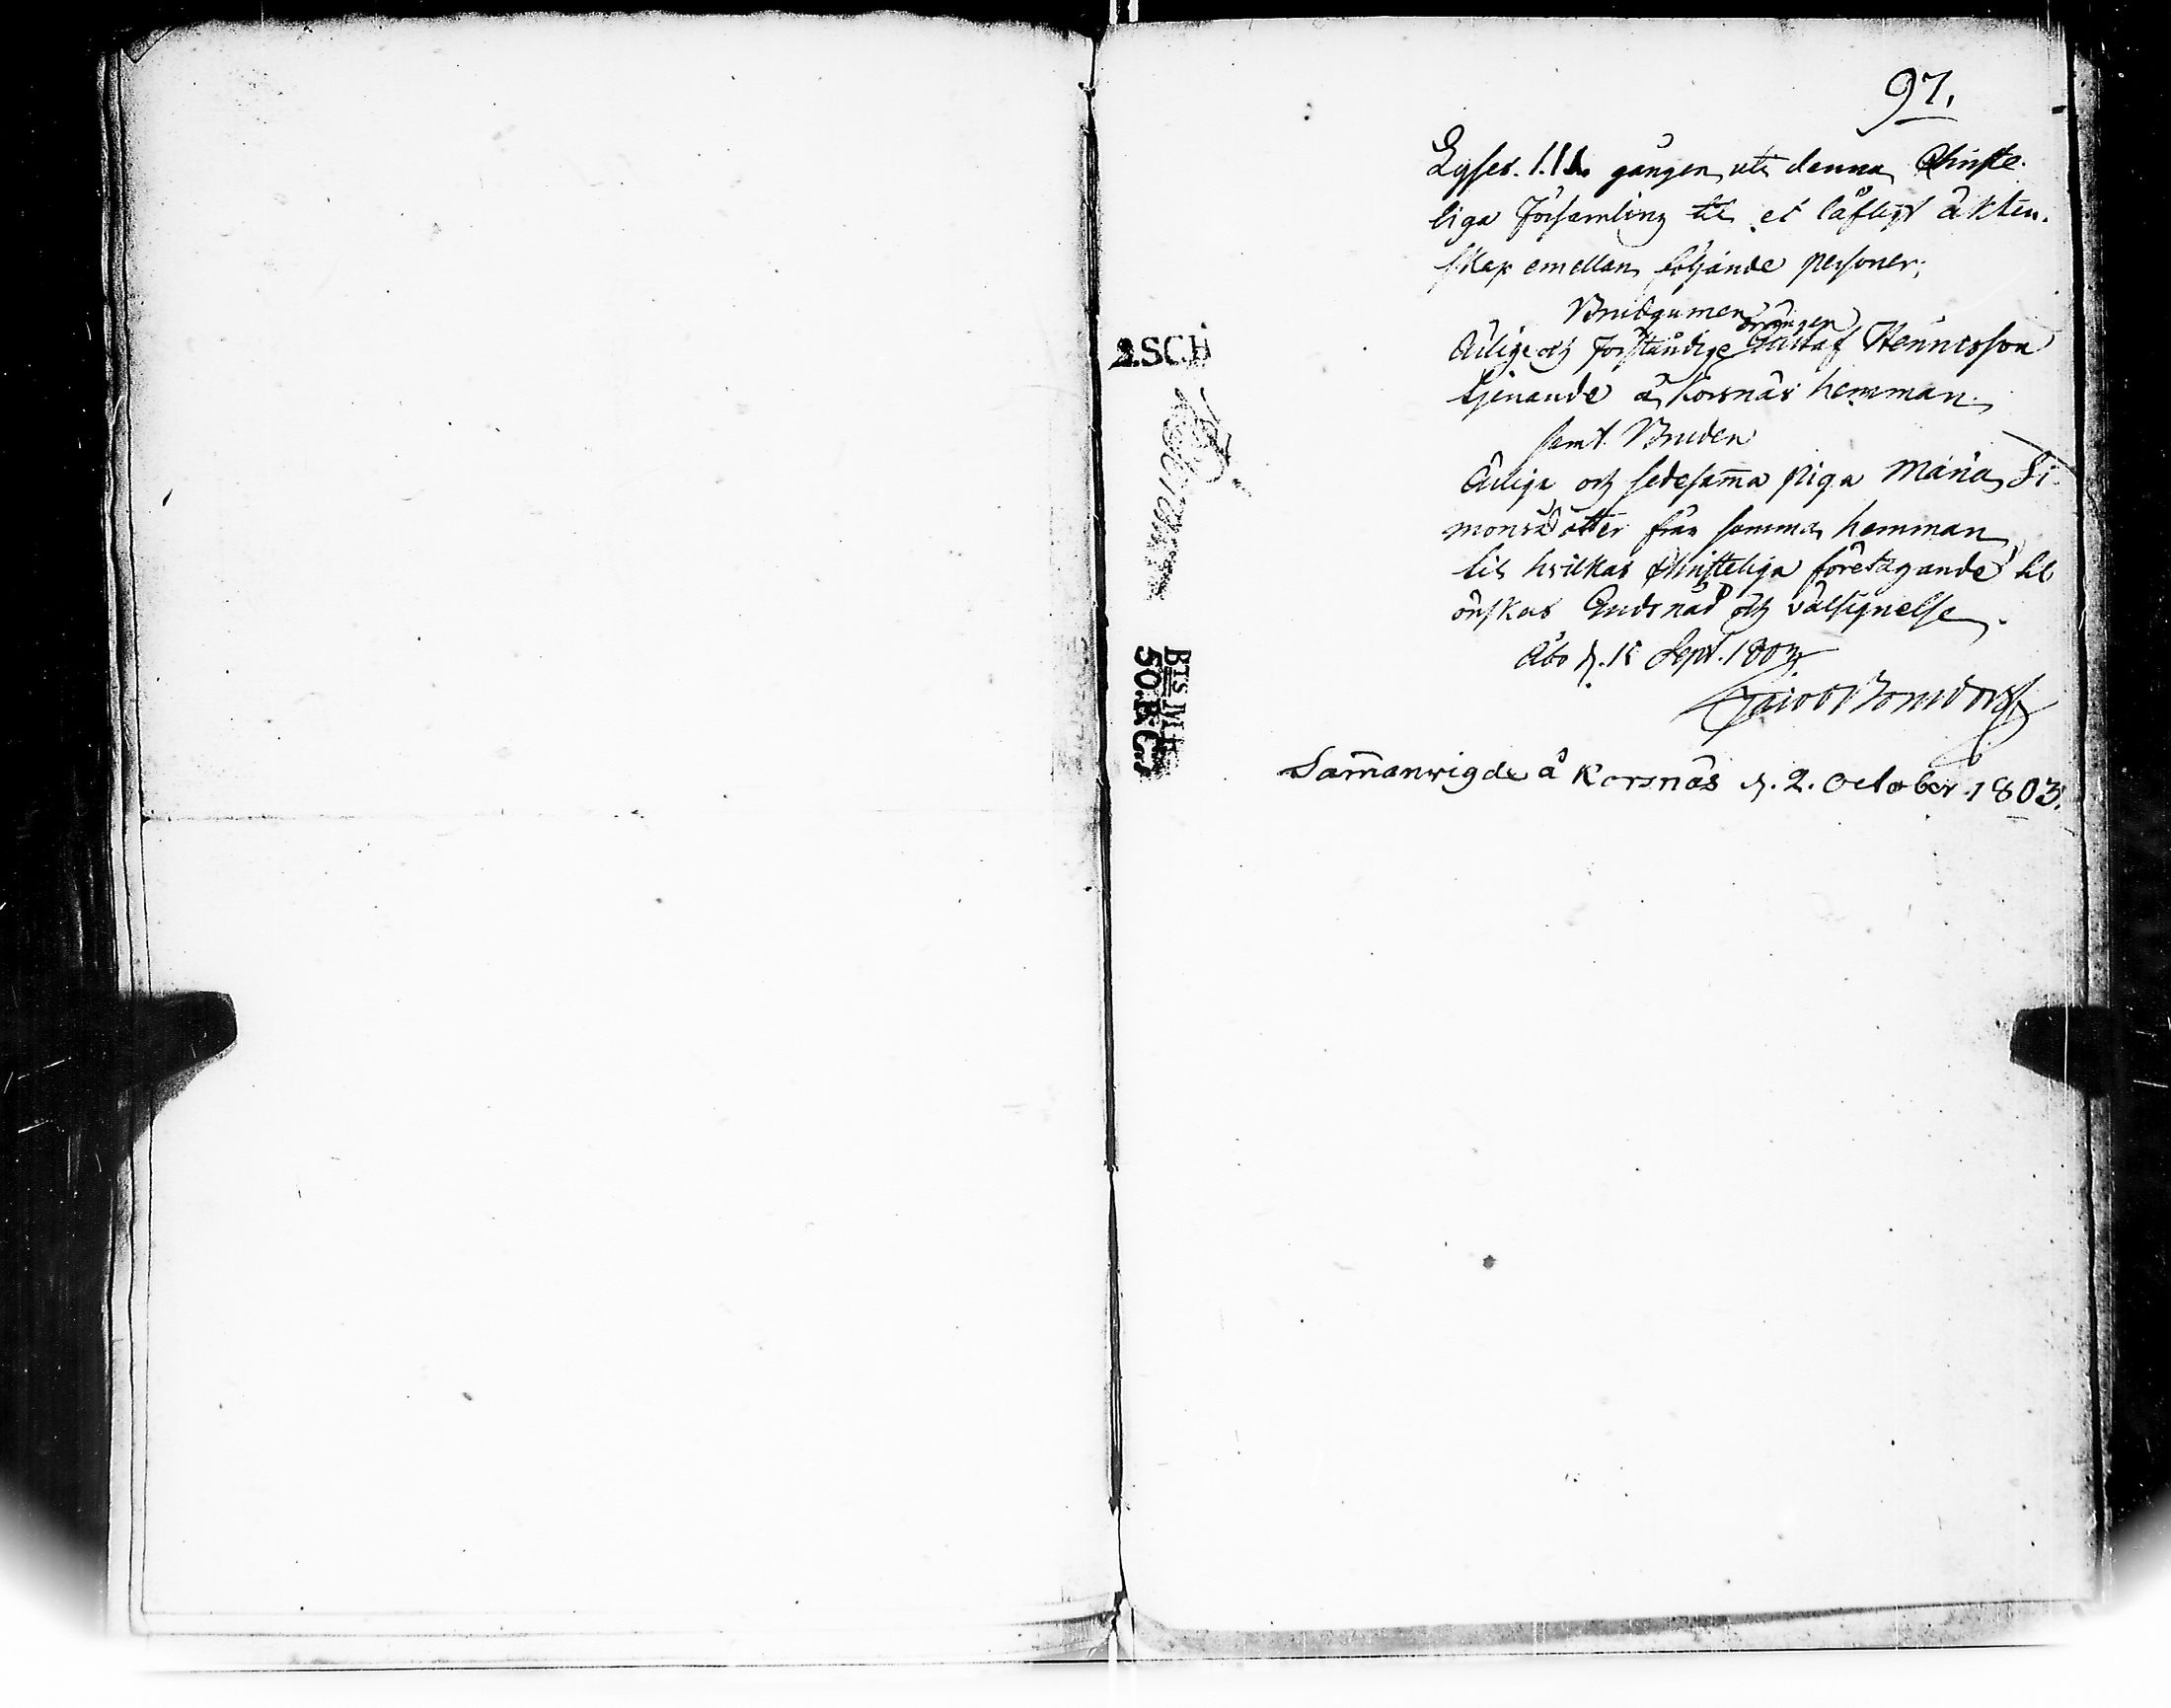 97.
Lyses 1. gången uti denna Christe-
liga Församling til et låfligt äkten-
skap emellan följande personer;
Brudgumen
drängen
Ärlige och Förståndige Gustaf Henricsson
tjenande å Korsnäs hemman
samt Bruden
Ärliga och sedesam̄a piga Maria Si-
monsdotter från samma hemman
til hvilkas Christeliga företagande til
önskas Guds nåd och välsignelse.
Åbo d. Sept. 1803
Jacob Bonsdorff
Sam̄anvigde å Korsnäs d. 2. October 1803.
2.SCH
BTS
50.